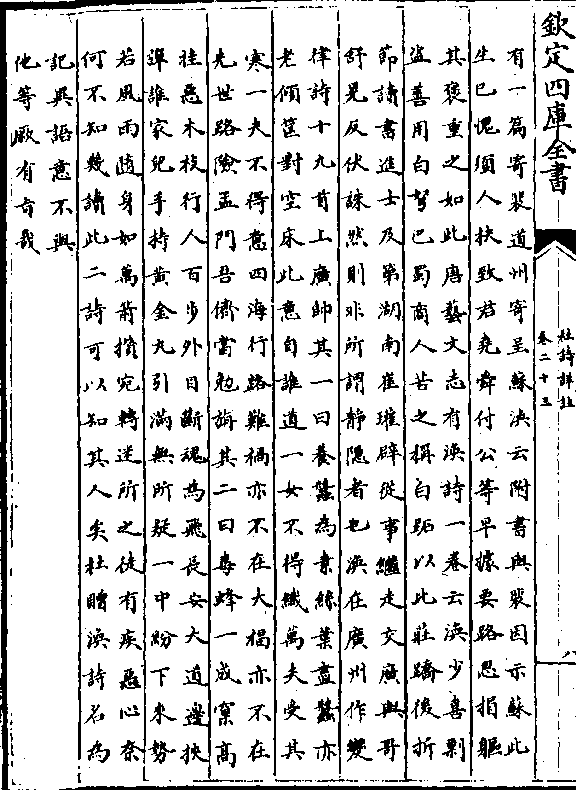 欽定四庫全書
杜詩詳註
卷二十三
八
有一篇寄裴道州寄呈蘇渙云附書與裴因示蘇此
生已愧須人扶致君堯舜付公等早據要路思捐軀
其褒重之如此唐藝文志有渙詩一卷云渙少喜剽
盜善用白弩巴蜀商人苦之稱白跖以此莊蹻後折
節讀書進士及第湖南崔瓘辟從事繼走交廣與哥
舒晃反伏誅然則非所謂靜隱者也渙在廣州作變
律詩十九首上廣帥其一曰養蠶為素絲葉盡蠶亦
老傾筐對空床此意向誰道一女不得織萬夫受其
寒一夫不得意四海行路難禍亦不在大禍亦不在
先世路險孟門吾儕當勉旃其二曰毒蜂一成窠高
挂惡木枝行人百步外目斷魂為飛長安大道邊挾
彈誰家兒手持黃金丸引滿無所疑一中紛下來勢
若風雨隨身如萬箭攢宛轉迷所之徒有疾惡心奈
何不知幾讀此二詩可以知其人矣杜贈渙詩名為
記異語意不與
他等厥有旨哉